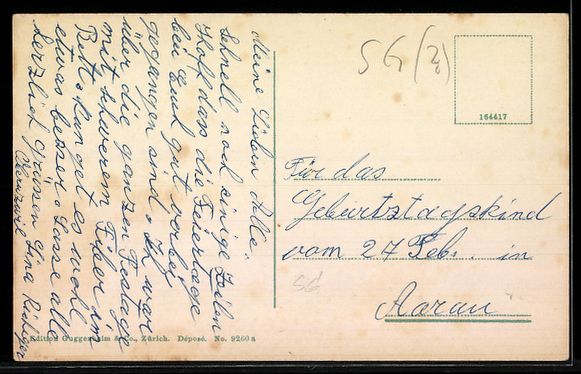 Meine Lieben Alle.
Schnell noch einige Zeilen
Hoff dass die Feiertage
bei Euch gut verbei
gegangen sind. Ich war
über die ganzen Festage
mit schwerem Fiber im
Bett. kan get es wohl
etwas besser. Lasse alle
herzlich grüssen Lina Richiger
SG (20)
164417
Für das
Geburtstagskind
vom 27 Feb. in
Aarau
SG
Edition Guggenheim & Co., Zürich. Déposé. No. 9260 a